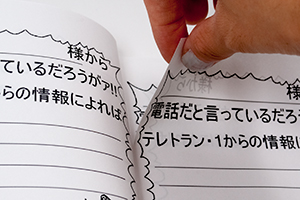 様から
ているだろうがァ!!
からの情報によれば
様
電話だと言っているだろう
テレトラン・1からの情報に